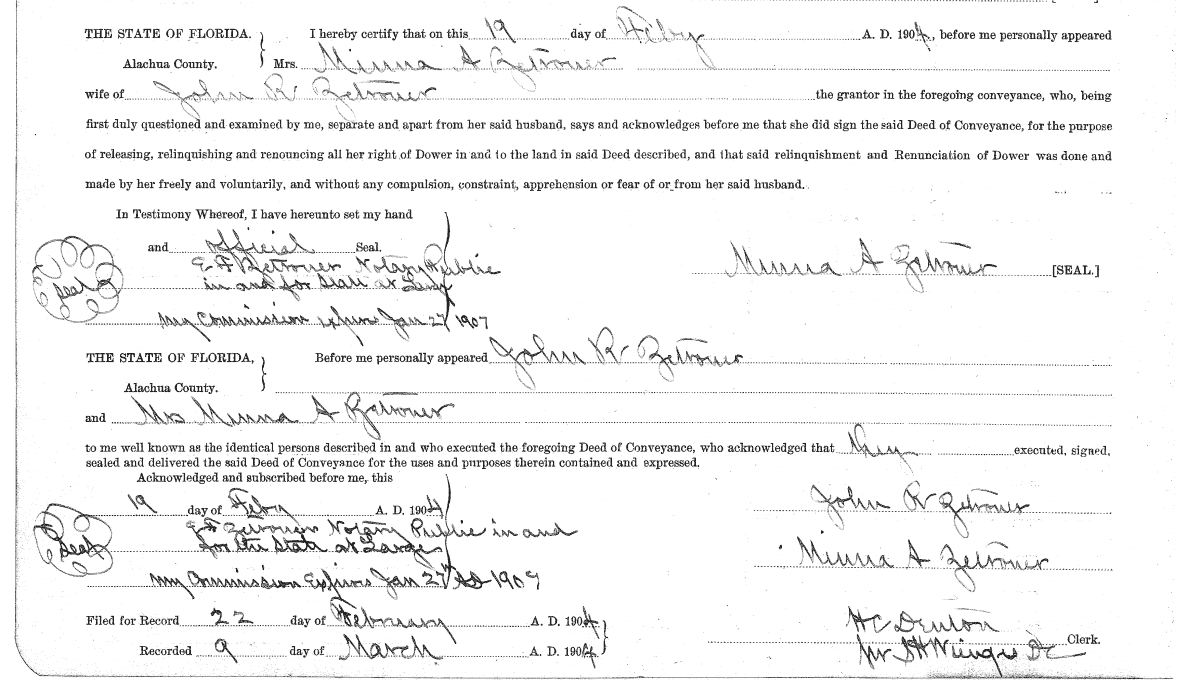 THE STATE OF FLORIDA. } I hereby certify that on this 19 day of Feby A. D. 1904, before me personally appeared
Alachua County. Mrs. Minna A Zetrouer
wife of John R Zetrouer the grantor in the foregoing conveyance, who, being
first duly questioned and examined by me, separate and apart from her said husband, says and acknowledges before me that she did sign the said Deed of Conveyance, for the purpose
of releasing, relinquishing and renouncing all her right of Dower in and to the land in said Deed described, and that said relinquishment and Renunciation of Dower was done and
made by her freely and voluntarily, and without any compulsion, constraint, apprehension or fear of or from her said husband.
In Testimony Whereof, I have hereunto set my hand
and official Seal.
E F Zetrouer Notary Public
Minna A Zetrouer [SEAL.]
seal in and for State at Large
My Commission expires Jan 27 1907
THE STATE OF FLORIDA, } Before me personally appeared John R Zetrouer
Alachua County.
and Mrs Minna A Zetrouer
to me well known as the identical persons described in and who executed the foregoing Deed of Conveyance, who acknowledged that they executed, signed,
sealed and delivered the said Deed of Conveyance for the uses and purposes therein contained and expressed.
Acknowledged and subscribed before me, this
19 day of Feby A. D. 1904
John R Zetrouer
E F Zetrouer Notary Public in and
seal for the State at Large
Minna A Zetrouer
My Commission Expires Jan 27 AD 190
Filed for Record 22 day of February A. D. 1904
H C Denton Clerk.
Recorded 9 day of March A. D. 1904
pr S H DC